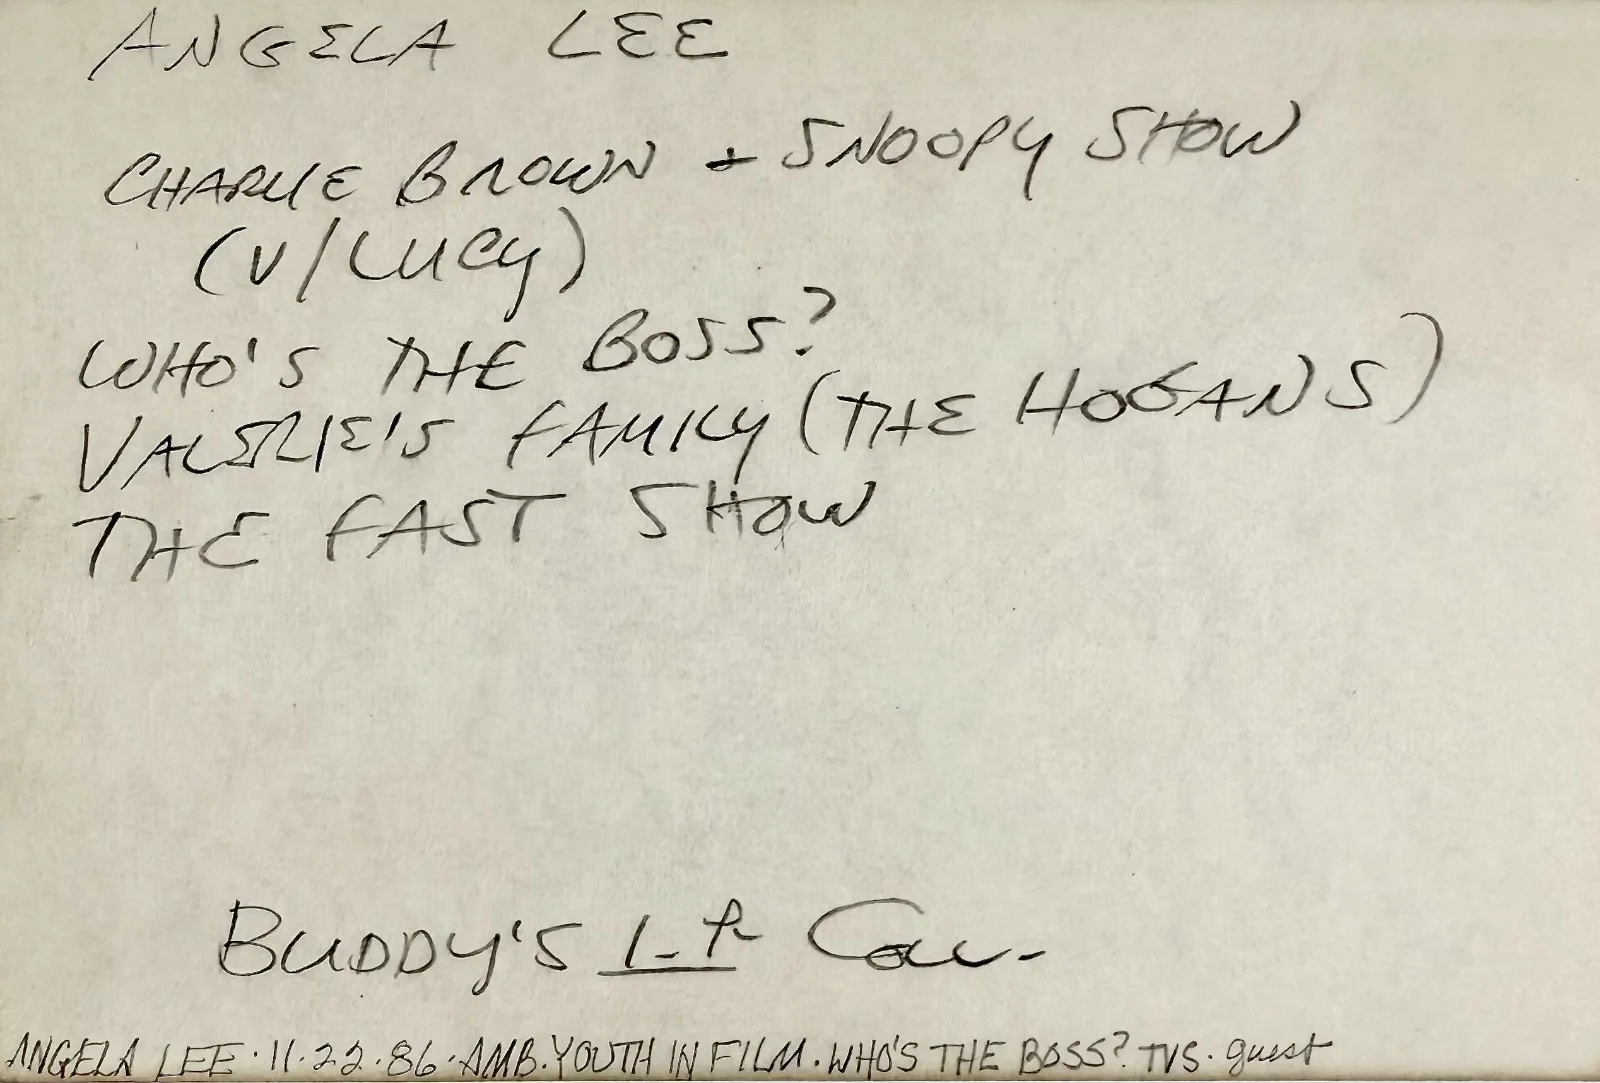 ANGELA LEE
CHARLIE BROWN + SNOOPY SHOW
(V/LUCY)
WHO'S THE BOSS?
VALERIE'S FAMILY (THE HOGANS)
THE FAST SHOW
BUDDY'S
ANGELA LEE · 11·22·86 · AMB. YOUTH IN FILM. WHO'S THE BOSS? TVS. guest